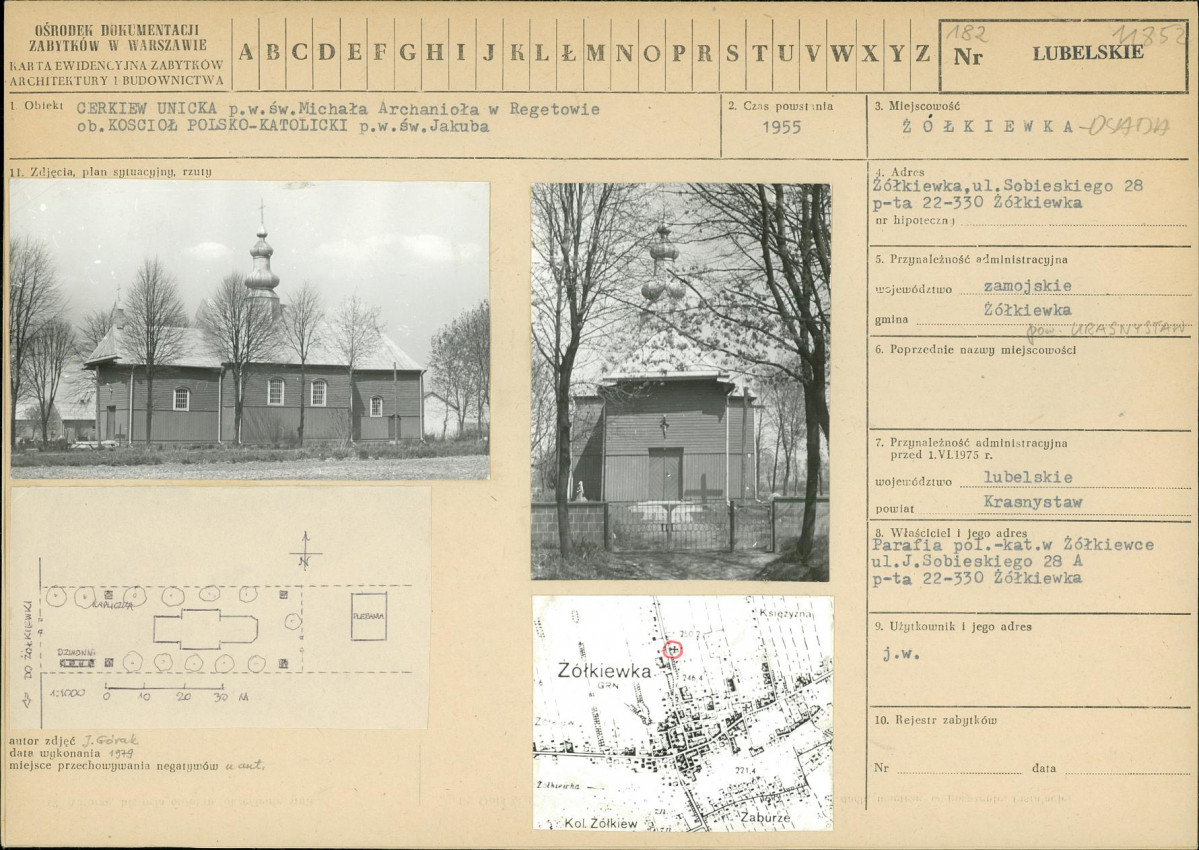 OŚRODEK DOKUMENTACJI
ZABYTKÓW W WARSZAWIE
KARTA EWIDENCYJNA ZABYTKÓW
ARCHITEKTURY I BUDOWNICTWA
A B C D E F G H I J K L Ł M N O P R S T U V W X Y Z
182
11852
Nr LUBELSKIE
1. Obiekt CERKIEW UNICKA p.w.św.Michała Archanioła w Regetowie
ob.KOSCIOŁ POLSKO-KATOLICKI p.w.św.Jakuba
2. Czas powstania
1955
3. Miejscowość
ŻÓŁKIEWKA-OSADA
11. Zdjęcia, plan sytuacyjny, rzuty
4. Adres
Żółkiewka,ul.Sobieskiego 28
p-ta 22-330 Żółkiewka
nr hipoteczny
5. Przynależność administracyjna
województwo zamojskie
gmina Żółkiewka
pow. KRASNYSTAW
6. Poprzednie nazwy miejscowości
7. Przynależność administracyjna
przed 1.VI.1975 r.
województwo lubelskie
powiat Krasnystaw
8. Właściciel i jego adres
Parafia pol.-kat.w Żółkiewce
ul.J.Sobieskiego 28 A
p-ta 22-330 Żółkiewka
9. Użytkownik i jego adres
j.w.
10. Rejestr zabytków
Nr data
N
KAPLICZKA
PLEBANIA
DO ŻÓŁKIEWKI
DZWONNI.
1:1000 0 10 20 30 M
Księżyzna
260.2
Żółkiewka
GRN
246.4
221.4
Żółkiewka
Kol. Żółkiew
Zaburze
autor zdjęć J. Górak
data wykonania 1979
miejsce przechowywania negatywów u aut.